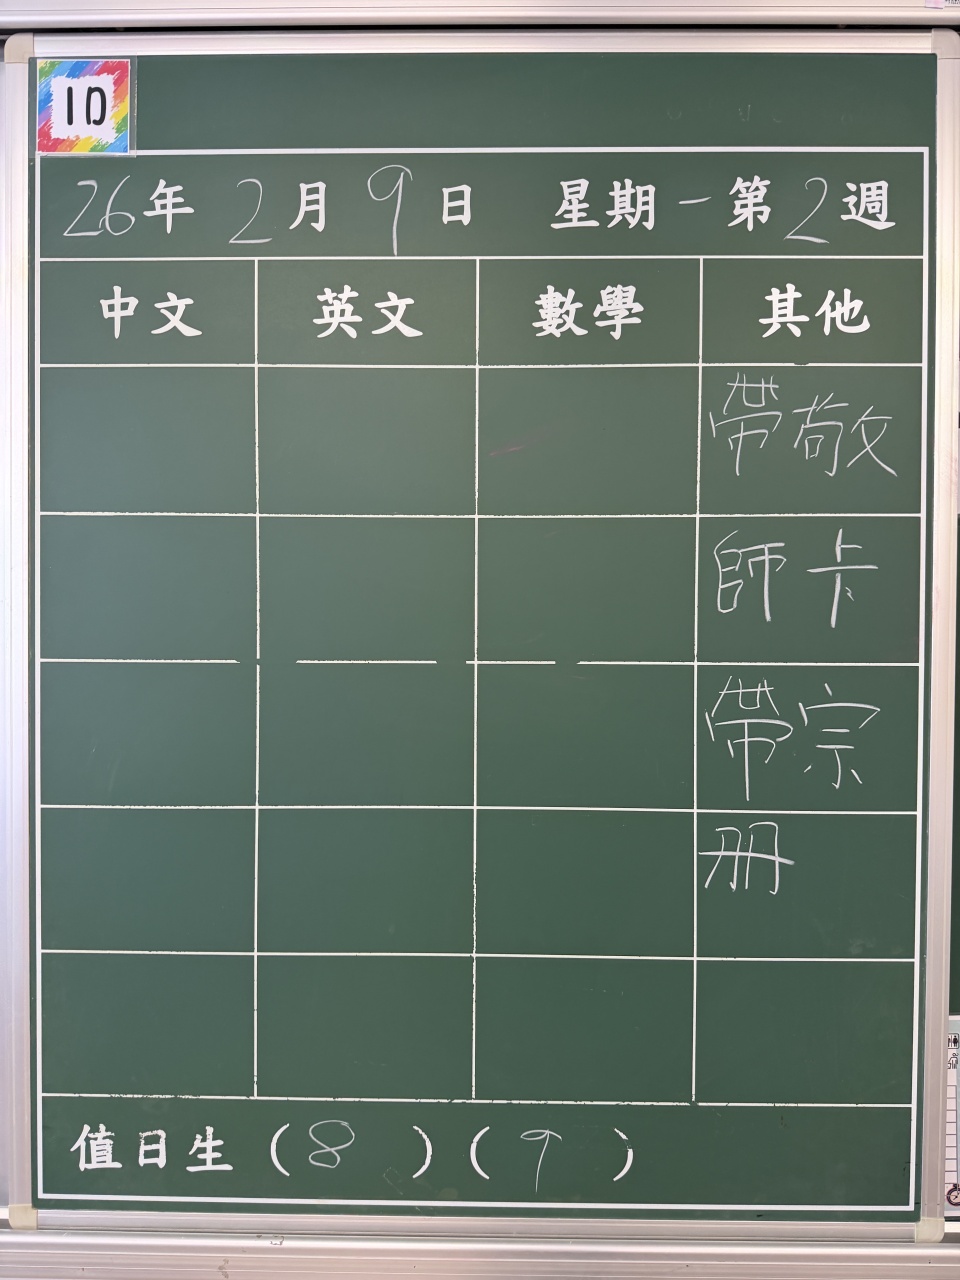 1D
26年 2月 9日 星期一 第2週
中文 英文 數學 其他
帶敬
師卡
帶宗
册
值日生 (8) (9)